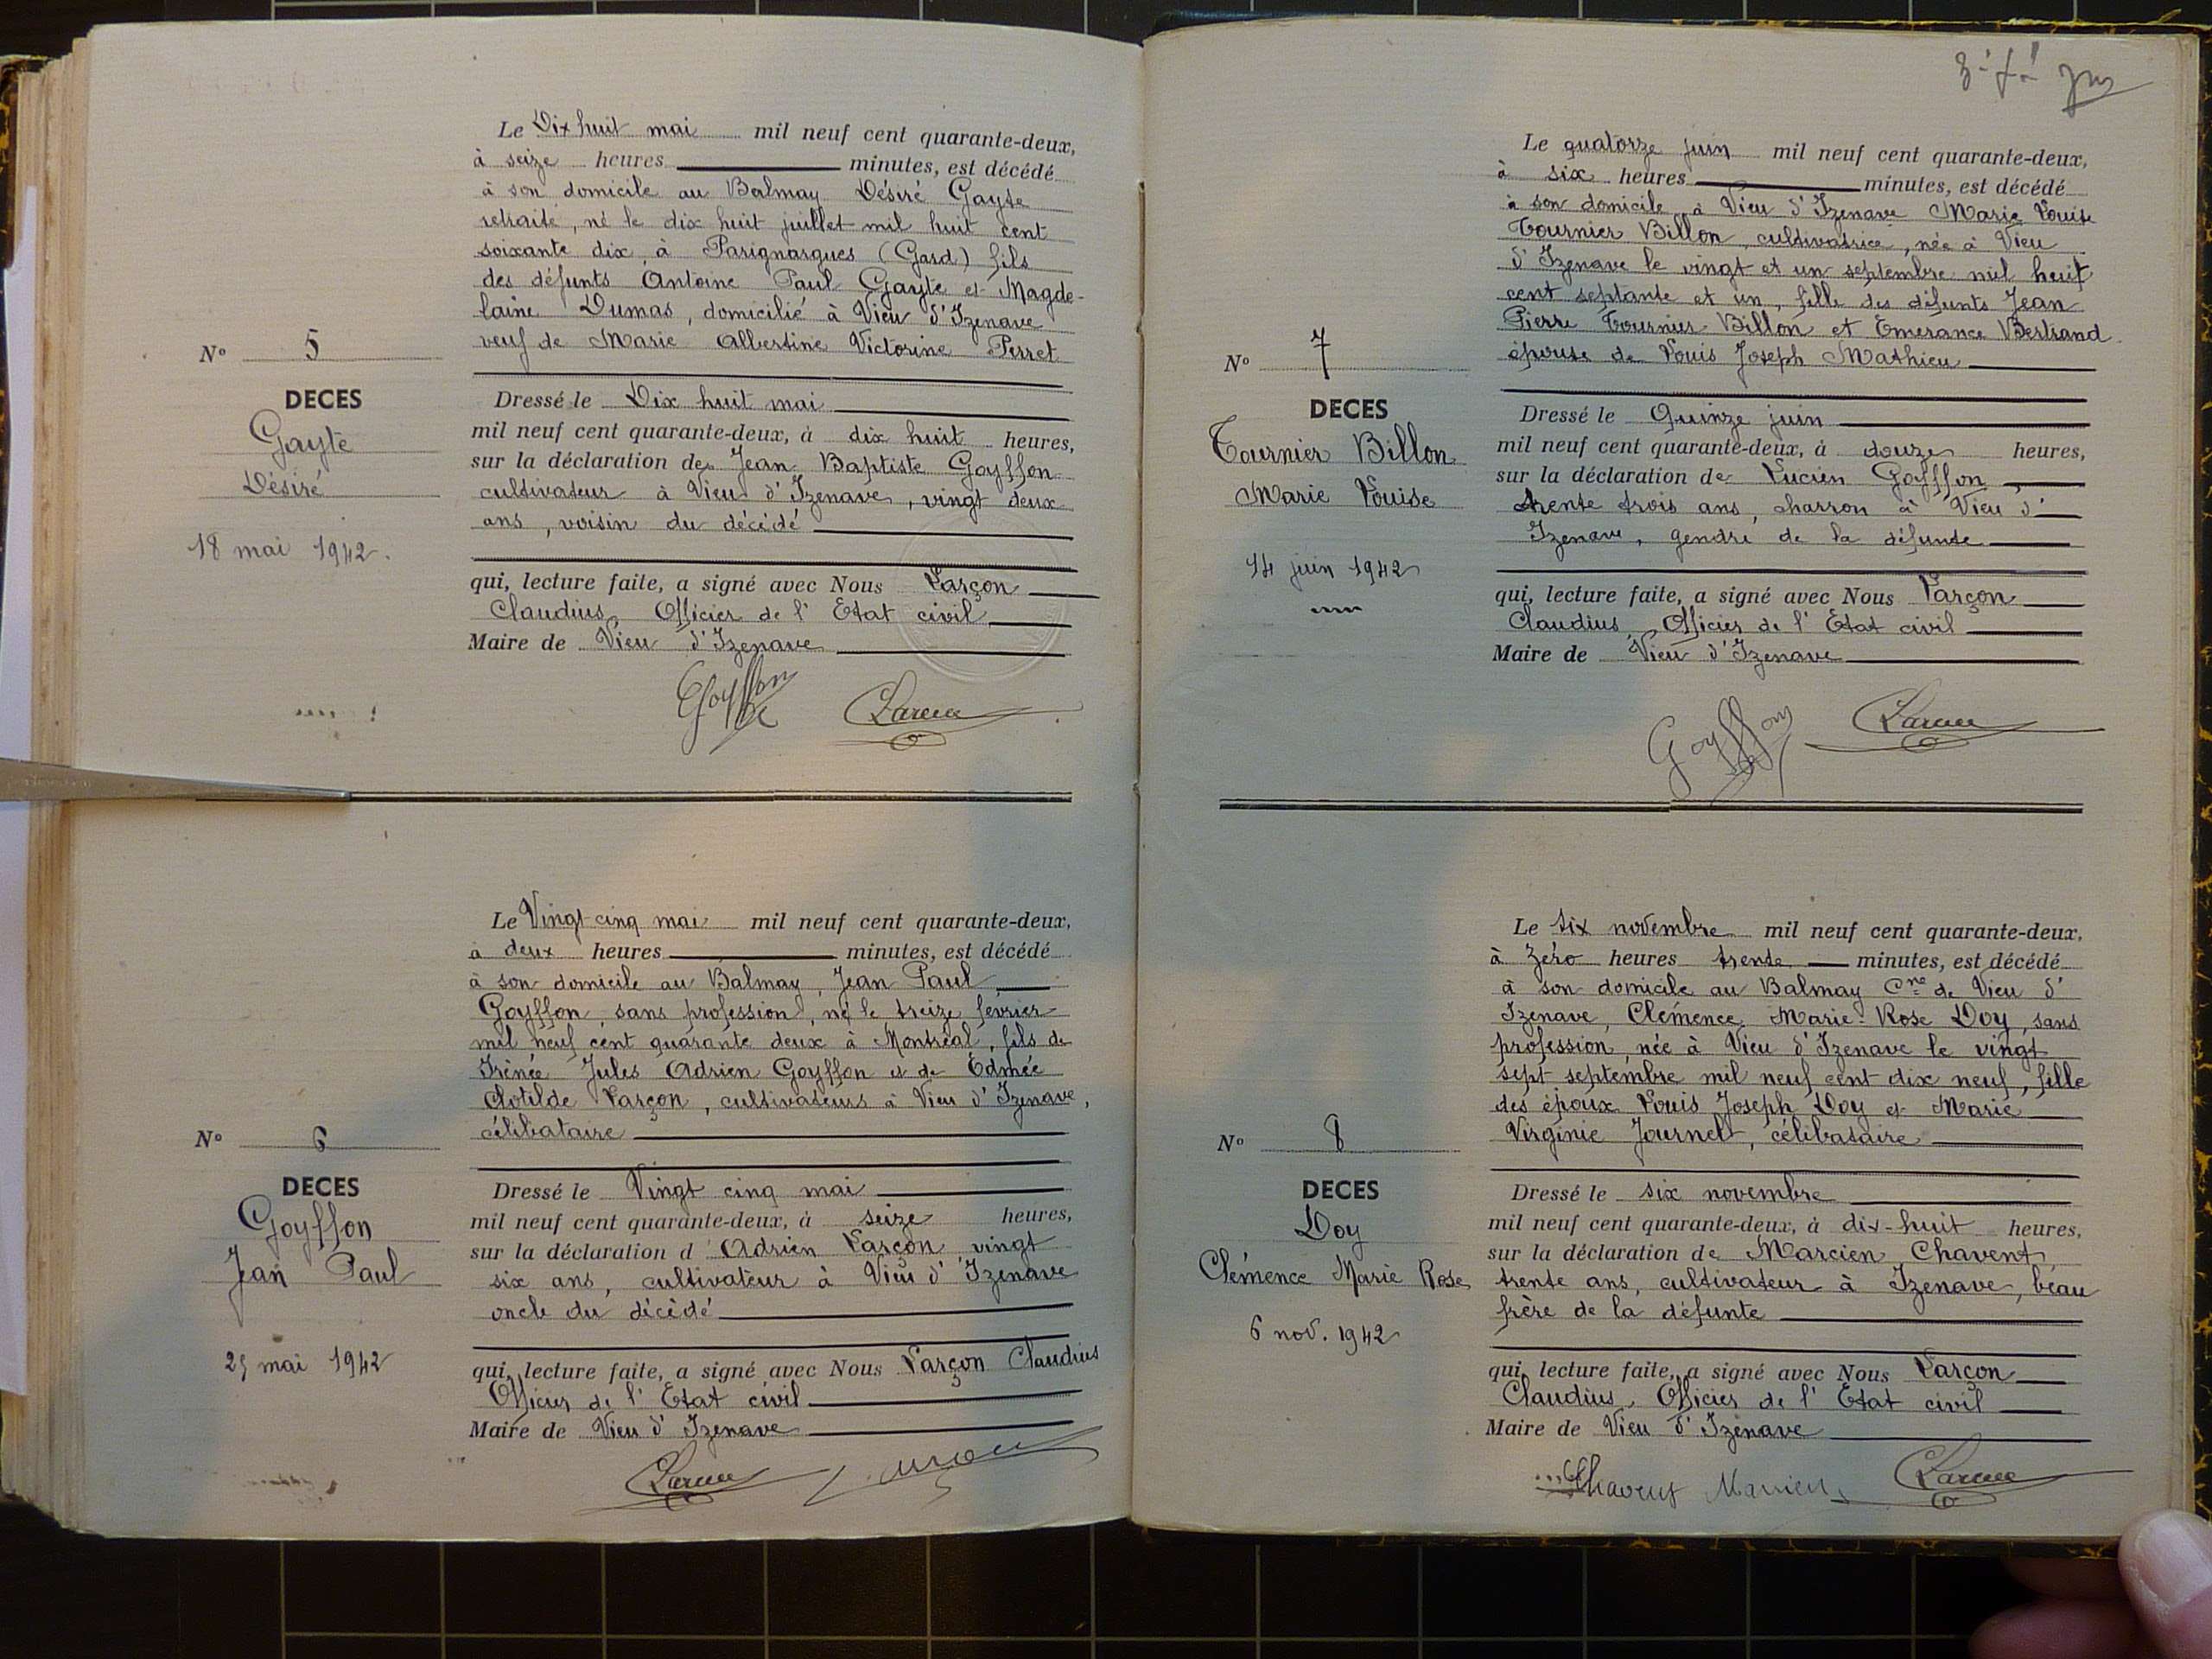 Le Dix huit mai mil neuf cent quarante-deux,
à seize heures minutes, est décédé
à son domicile au Balmay Désiré Gayte
retraité, né le dix huit juillet mil huit cent
soixante dix, à Parignargues (Gard) fils
des défunts Antoine Paul Gayte et Magde-
laine Dumas, domicilié à Vieu d'Izenave
veuf de Marie Albertine Victorine Perret
N° 5
DECES
Gayte
Désiré
18 mai 1942.
Dressé le Dix huit mai
mil neuf cent quarante-deux, à dix huit heures,
sur la déclaration de Jean Baptiste Goyffon
cultivateur à Vieu d'Izenave, vingt deux
ans, voisin du décédé
qui, lecture faite, a signé avec Nous Larçon
Claudius, Officier de l'Etat civil
Maire de Vieu d'Izenave
Goyffon
Larçon
Le Vingt-cinq mai mil neuf cent quarante-deux,
à deux heures minutes, est décédé
à son domicile au Balmay, Jean Paul
Goyffon, sans profession, né le treize février
mil neuf cent quarante deux à Montréal, fils de
Irénée Jules Adrien Goyffon et de Edmée
Clotilde Larçon, cultivateurs à Vieu d'Izenave,
célibataire
N° 6
DECES
Goyffon
Jean Paul
25 mai 1942
Dressé le Vingt cinq mai
mil neuf cent quarante-deux, à seize heures,
sur la déclaration d'Adrien Larçon, vingt
six ans, cultivateur à Vieu d'Izenave
oncle du décédé
qui, lecture faite, a signé avec Nous Larçon Claudius
Officier de l'Etat civil
Maire de Vieu d'Izenave
Larçon
Le quatorze juin mil neuf cent quarante-deux,
à six heures minutes, est décédé
à son domicile à Vieu d'Izenave Marie Louise
Tournier Billon, cultivatrice, née à Vieu
d'Izenave le vingt et un septembre mil huit
cent septante et un, fille des défunts Jean
Pierre Tournier Billon et Emerance Bertrand
épouse de Louis Joseph Mathieu
N° 7
DECES
Tournier Billon
Marie Louise
14 juin 1942
Dressé le Quinze juin
mil neuf cent quarante-deux, à douze heures,
sur la déclaration de Lucien Goyffon
trente trois ans, charron à Vieu d'
Izenave, gendre de la défunte
qui, lecture faite, a signé avec Nous Larçon
Claudius, Officier de l'Etat civil
Maire de Vieu d'Izenave
Goyffon
Larçon
Le six novembre mil neuf cent quarante-deux,
à zéro heures trente minutes, est décédé
à son domicile au Balmay Cne de Vieu d'
Izenave, Clémence Marie-Rose Doy, sans
profession, née à Vieu d'Izenave le vingt
sept septembre mil neuf cent dix neuf, fille
des époux Louis Joseph Doy et Marie
Virginie Journet, célibataire
N° 8
DECES
Doy
Clémence Marie Rose
6 nov. 1942
Dressé le six novembre
mil neuf cent quarante-deux, à dix-huit heures,
sur la déclaration de Marcien Chavent
trente ans, cultivateur à Izenave, beau
frère de la défunte
qui, lecture faite, a signé avec Nous Larçon
Claudius, Officier de l'Etat civil
Maire de Vieu d'Izenave
Chavent Marcien
Larçon